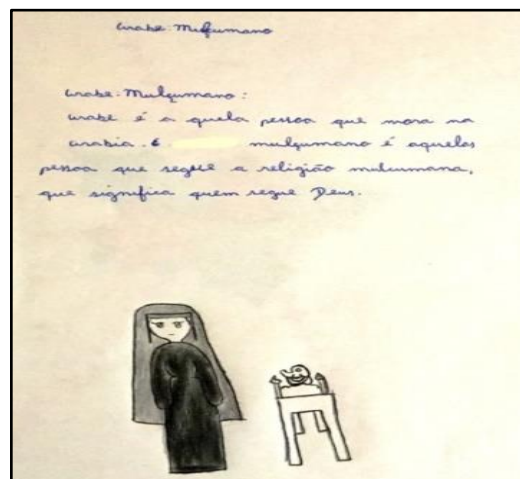 arabe: Mulfumano
arabe: Mulçumano:
arabe é a quela pessoa que mora na
arabia. E mulçumano é aquelas
pessoa que segue a religião mulcumana,
que significa quem segue Deus.